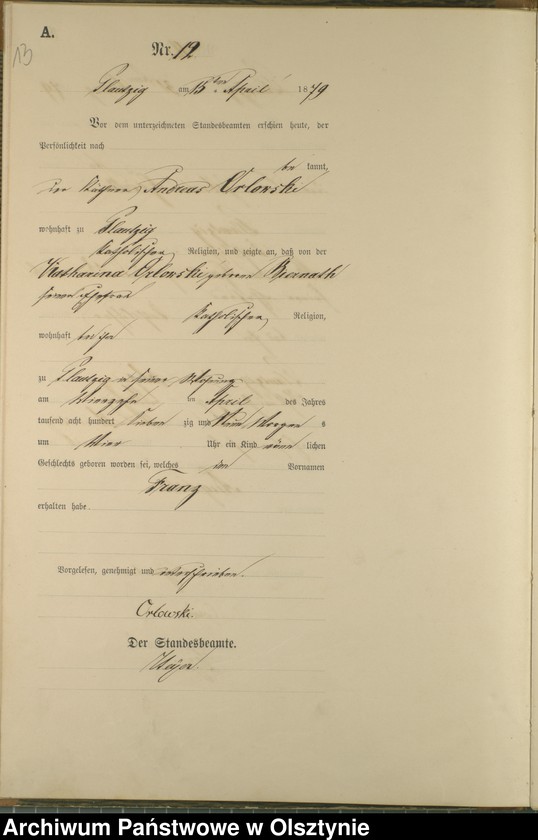 A.
13
Nr. 12
Plautzig am 15ten April 1879
Vor dem unterzeichneten Standesbeamten erschien heute, der
Persönlichkeit nach
be kannt,
der Käthner Andreas Orlowski
wohnhaft zu Plautzig
katholischer Religion, und zeigte an, daß von der
Katharina Orlowski geborene Biernath
seiner Ehefrau
katholischer Religion,
wohnhaft bei ihm
zu Plautzig in seiner Wohnung
am vierzehn ten April des Jahres
tausend acht hundert sieben zig und neun Morgen s
um vier Uhr ein Kind männ lichen
Geschlechts geboren worden sei, welches den Vornamen
Franz
erhalten habe
Vorgelesen, genehmigt und unterschrieben.
Orlowski.
Der Standesbeamte.
Archiwum Państwowe w Olsztynie